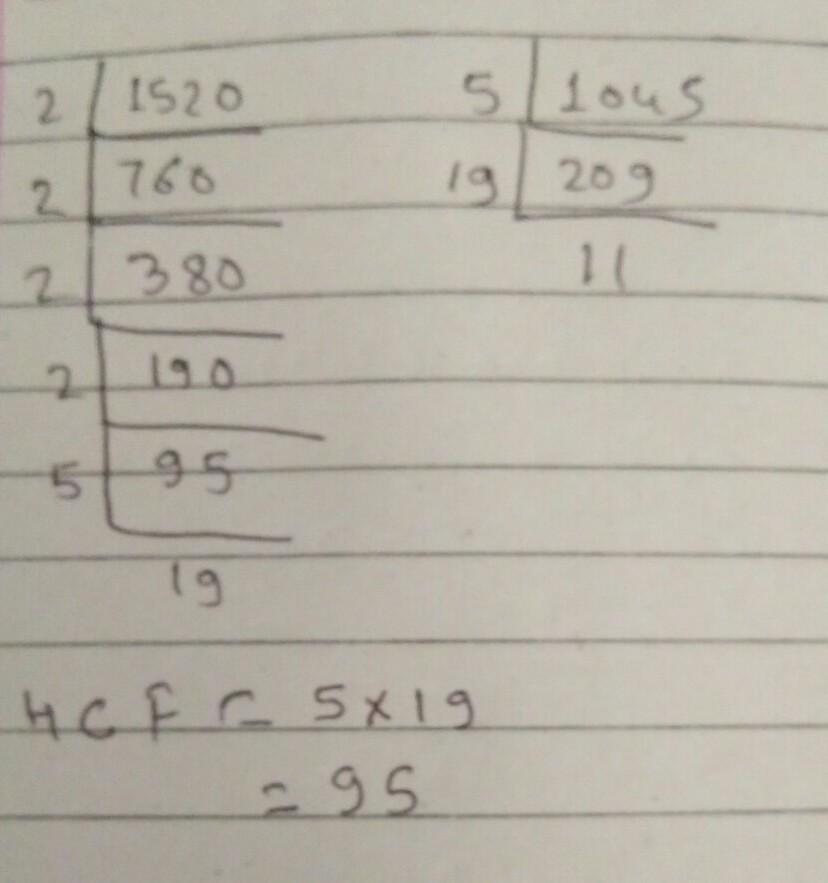 2 1520
2 760
2 380
2 190
5 95
19
5 1045
19 209
11
HCF = 5×19
= 95